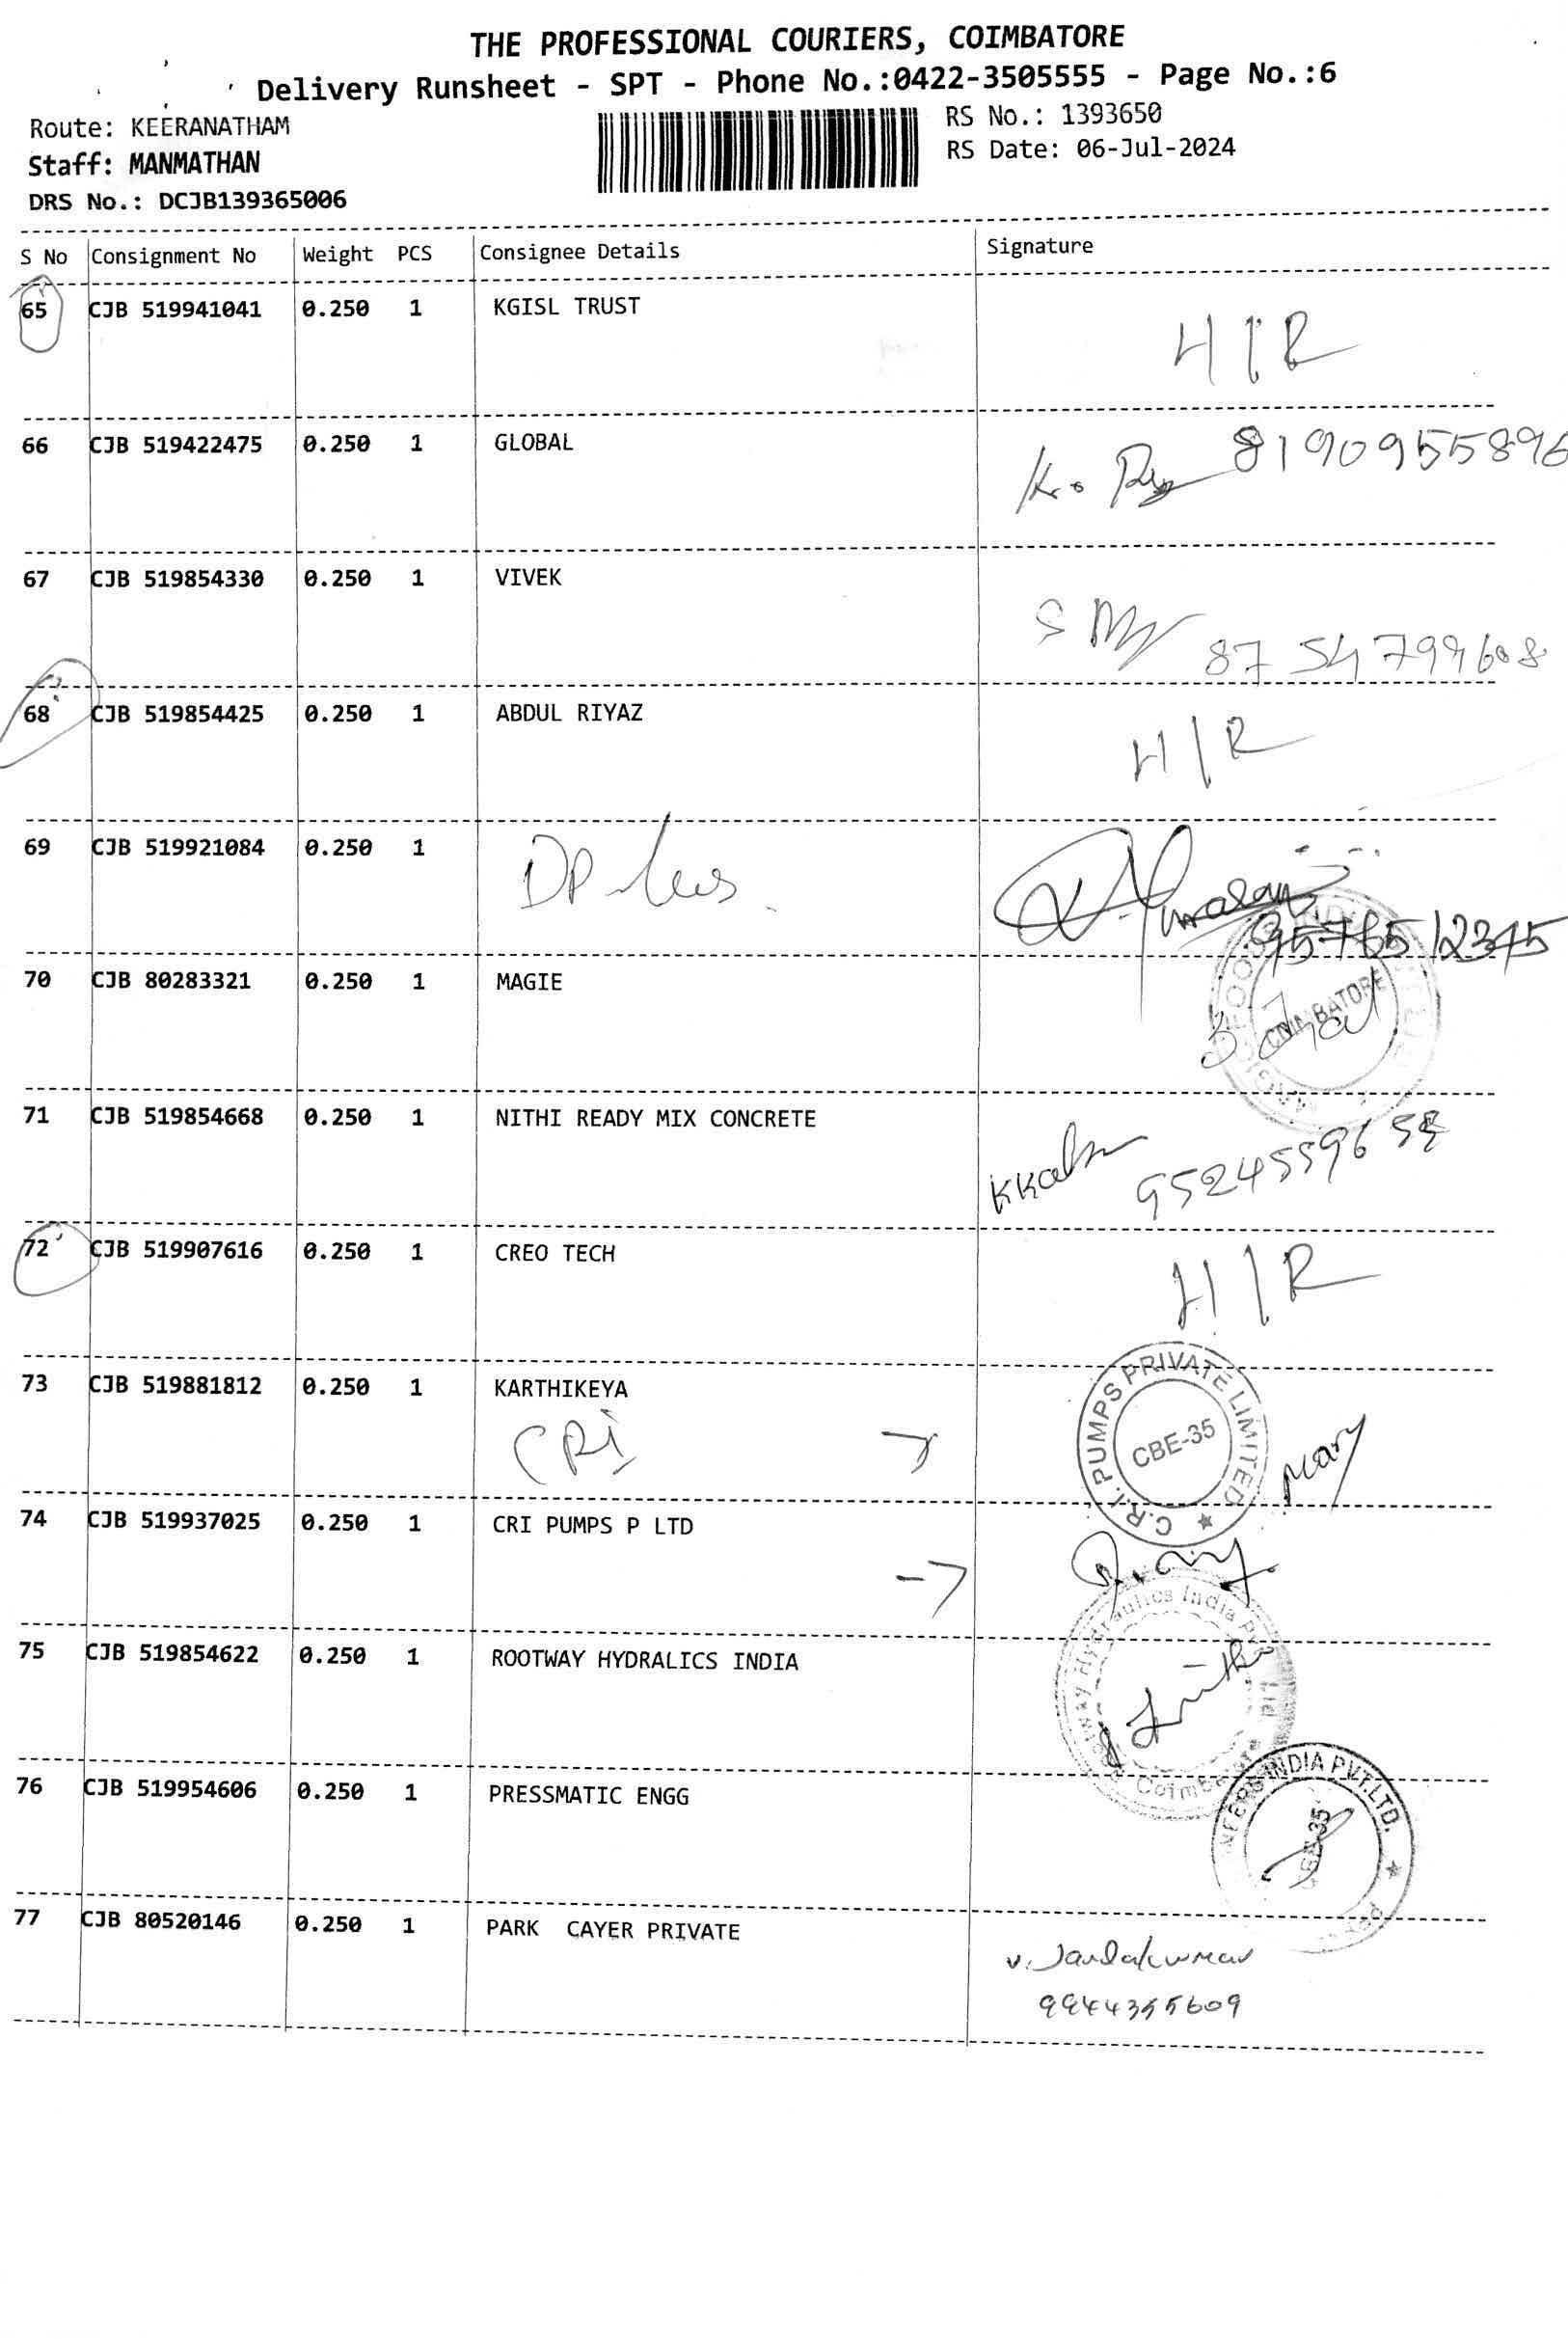 THE PROFESSIONAL COURIERS, COIMBATORE
Delivery Runsheet - SPT - Phone No.:0422-3505555 - Page No.:6
Route: KEERANATHAM
RS No.: 1393650
Staff: MANMATHAN
RS Date: 06-Jul-2024
DRS No.: DCJB139365006
S No Consignment No Weight PCS Consignee Details Signature
65 CJB 519941041 0.250 1 KGISL TRUST
H/R
66 CJB 519422475 0.250 1 GLOBAL
8190955896
67 CJB 519854330 0.250 1 VIVEK
8754799608
68 CJB 519854425 0.250 1 ABDUL RIYAZ
H/R
69 CJB 519921084 0.250 1
DP
9576512345
70 CJB 80283321 0.250 1 MAGIE
COIMBATORE
71 CJB 519854668 0.250 1 NITHI READY MIX CONCRETE
72 CJB 519907616 0.250 1 CREO TECH
H/R
73 CJB 519881812 0.250 1 KARTHIKEYA
CRI
C.R.I. PUMPS PRIVATE LIMITED
CBE-35
Mary
74 CJB 519937025 0.250 1 CRI PUMPS P LTD
75 CJB 519854622 0.250 1 ROOTWAY HYDRALICS INDIA
Hydraulics India
Coimbatore
76 CJB 519954606 0.250 1 PRESSMATIC ENGG
INDIA PVT.LTD.
77 CJB 80520146 0.250 1 PARK CAYER PRIVATE
9944355609